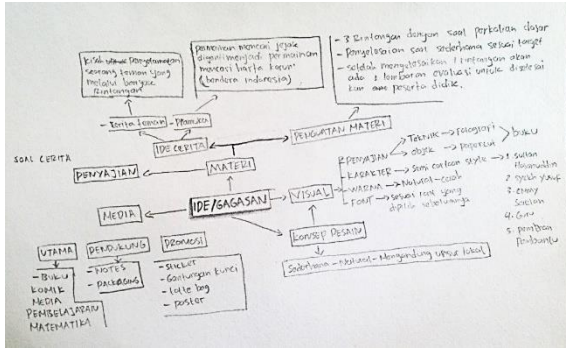 Kisah untuk penyelamatan
seorang teman yang
melalui banyak
Rintangan
permainan mencari jejak
diganti menjadi permainan
mencari harta karun
(bendera Indonesia)
- 3 Rintangan dengan soal perkalian dasar
- Penyelesaian soal sederhana sesuai target
- setelah menyelesaikan 1 rintangan akan
ada 1 lembaran evaluasi untuk diselesai
kan peserta didik.
- Cerita teman
- Pramuka
IDE CERITA
PENGUATAN MATERI
SOAL CERITA
PENYAJIAN
MATERI
MEDIA
IDE/GAGASAN
VISUAL
PENYAJIAN
Teknik → Fotografi
objek → papercut
buku
KARAKTER → Semi cartoon style
WARNA → Natural - cerah
FONT → sesuai font yang
dipilih sebelumnya
1. Sultan
Hasanuddin
2. Syekh Yusuf
3. Emmy
Saelan
4. Guru
5.
KONSEP DESAIN
Sederhana - Natural - Mengandung unsur lokal
UTAMA
- BUKU
KOMIK
MEDIA
PEMBELAJARAN
MATEMATIKA
PENDUKUNG
- NOTES
- PACKAGING
PROMOSI
- Sticker
- Gantungan kunci
- totte bag
- poster